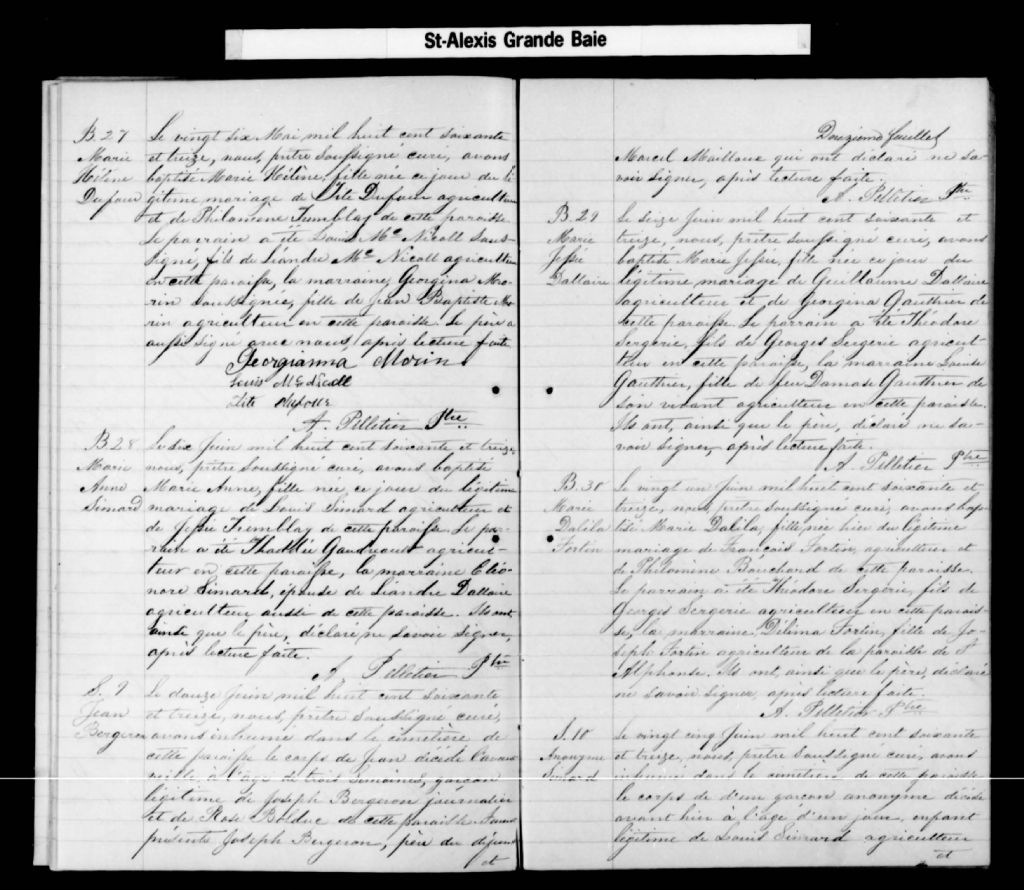 St-Alexis Grande Baie
B. 27
Marie
Hélène
Dufour
Le vingt six Mai mil huit cent soixante
et treize, nous, prêtre soussigné curé, avons
baptisé Marie Hélène, fille née ce jour du lé-
gitime mariage de Tite Dufour agriculteur
et de Philomène Tremblay de cette paroisse.
Le parrain a été Louis Mc Nicoll sous-
signé, fils de Léandre Mc Nicoll agriculteur
en cette paroisse, la marraine Georgina Mo-
rin soussignée, fille de Jean Baptiste Mo-
rin agriculteur en cette paroisse. Le père a
aussi signé avec nous, après lecture faite
Georgianna Morin
Louis McNicoll
Tite Dufour
A. Pelletier Ptre
B. 28
Marie
Anne
Simard
Le dix Juin mil huit cent soixante et treize,
nous, prêtre soussigné curé, avons baptisé
Marie Anne, fille née ce jour du légitime
mariage de Louis Simard agriculteur et
de Jessée Tremblay de cette paroisse. Le par-
rain a été Thaddée Gaudreault agricul-
teur en cette paroisse, la marraine Eléo-
nore Simard, épouse de Léandre Dallaire
agriculteur aussi de cette paroisse. Ils ont
ainsi que le père, déclaré ne savoir signer,
après lecture faite.
A. Pelletier Ptre
S. 9
Jean
Bergeron
Le douze Juin mil huit cent soixante
et treize, nous, prêtre soussigné curé,
avons inhumé dans le cimetière de
cette paroisse le corps de Jean décédé l'avant
veille à l'âge de trois semaines, garçon
légitime de Joseph Bergeron journalier
et de Rose Bolduc de cette paroisse
présents Joseph Bergeron, père du défunt
et
Douzième feuillet
Marcel Mailloux qui ont déclaré ne sa-
voir signer, après lecture faite.
A. Pelletier Ptre
B. 29
Marie
Jessée
Dallaire
Le seize Juin mil huit cent soixante et
treize, nous, prêtre soussigné curé, avons
baptisé Marie Jessée, fille née ce jour du
légitime mariage de Guillaume Dallaire
agriculteur et de Georgina Gauthier de
cette paroisse. Le parrain a été Théodore
Sergerie, fils de Georges Sergerie agricul-
teur en cette paroisse, la marraine Louise
Gauthier, fille de feu Damase Gauthier de
son vivant agriculteur en cette paroisse.
Ils ont, ainsi que le père, déclaré ne sa-
voir signer, après lecture faite.
A. Pelletier Ptre
B. 30
Marie
Dalila
Fortin
Le vingt un Juin mil huit cent soixante et
treize, nous, prêtre soussigné curé, avons bap-
tisé Marie Dalila, fille née hier du légitime
mariage de François Fortin, agriculteur et
de Philomène Bouchard de cette paroisse.
Le parrain a été Théodore Sergerie, fils de
Georges Sergerie agriculteur en cette parois-
se, la marraine Délima Fortin, fille de Jo-
seph Fortin agriculteur de la paroisse de St
Alphonse. Ils ont, ainsi que le père, déclaré
ne savoir signer, après lecture faite.
A. Pelletier Ptre
S. 10
Anonyme
Simard
Le vingt cinq Juin mil huit cent soixante
et treize, nous, prêtre soussigné curé, avons
inhumé dans le cimetière de cette paroisse
le corps de d'un garçon anonyme décédé
avant hier à l'âge d'un jour, enfant
légitime de Louis Simard agriculteur
et